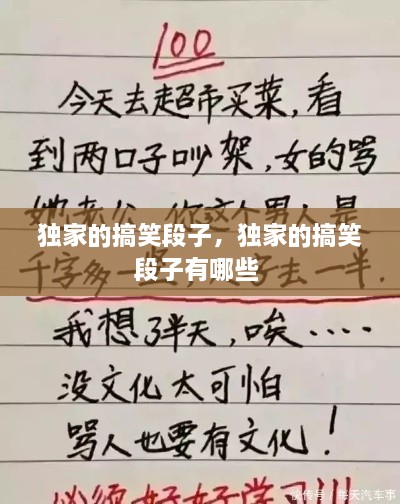 100
今天去超市买菜,看
到两口子吵架,女的骂
她老公,你这个男人是
独家的搞笑段子，独家的搞笑
段子有哪些
千字多一 子去一半.
我想了半天,唉·····
没文化太可怕
骂人也要有文化!
必须好好学习!!!
快传号/每天汽车事